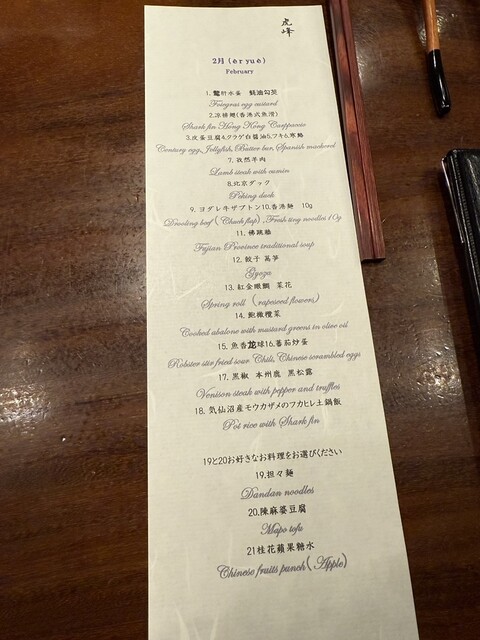 虎峰
2月 (èr yuè)
February
1. 鵞肝水蛋 蚝油勾芡
Foiegras egg custard
2.涼拌翅(香港式魚滑)
Shark fin Hong Kong Carppacio
3.皮蛋豆腐4.クラゲ白醤油5.フキ6.寒鰆
Century egg, Jellyfish, Butter bar, Spanish macherel
7. 孜然羊肉
Lamb steak with cumin
8.北京ダック
Peking duck
9. ヨダレ牛ザブトン10.香港麺 10g
Drooling beef (Chuch flap) ,Fresh tiny noodles 10g
11. 佛跳牆
Fujian Province traditional soup
12. 餃子 萵笋
Gyoza
13. 紅金眼鯛 菜花
Spring roll (rapeseed flowers)
14. 鮑橄欖菜
Cooked abalone with mustard greens in olive oil
15. 魚香龙球16.蕃茄炒蛋
Robster stir fried sour Chili, Chinese scrambled eggs
17. 黒椒 本州鹿 黒松露
Venison steak with pepper and truffles
18. 気仙沼産モウカザメのフカヒレ土鍋飯
Pot rice with Shark fin
19と20お好きなお料理をお選びください
19.担々麺
Dandan noodles
20.陳麻婆豆腐
Mapo tofu
21桂花蘋果糖水
Chinese fruits punch (Apple)